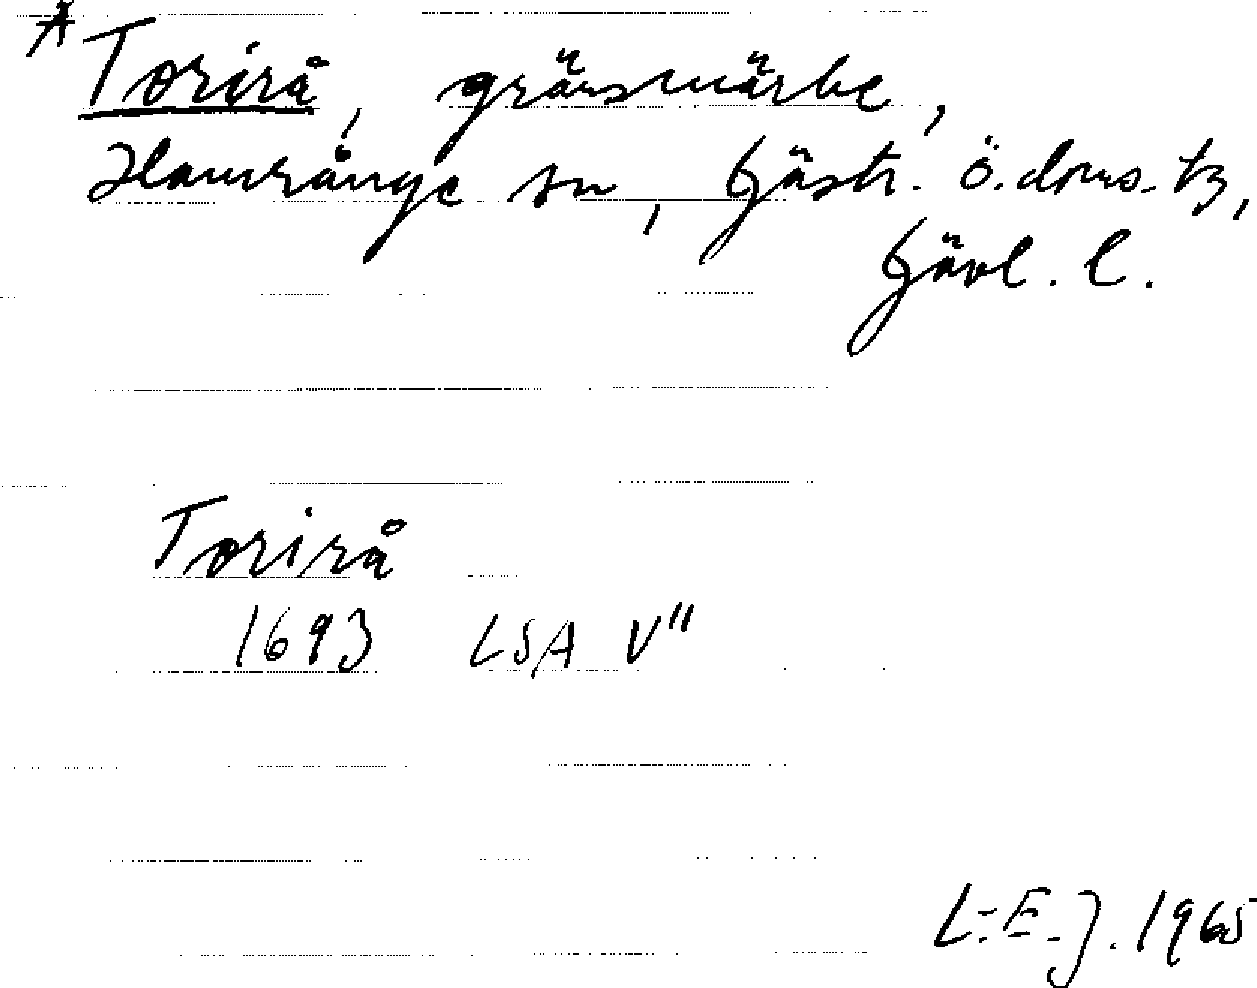 Å
Torirå, gränsmärke,
Hamrånge sn, Gästr. ö. doms. tg,
Gävl. l.
Torirå
1693 LSA V"
L-E. J. 1965